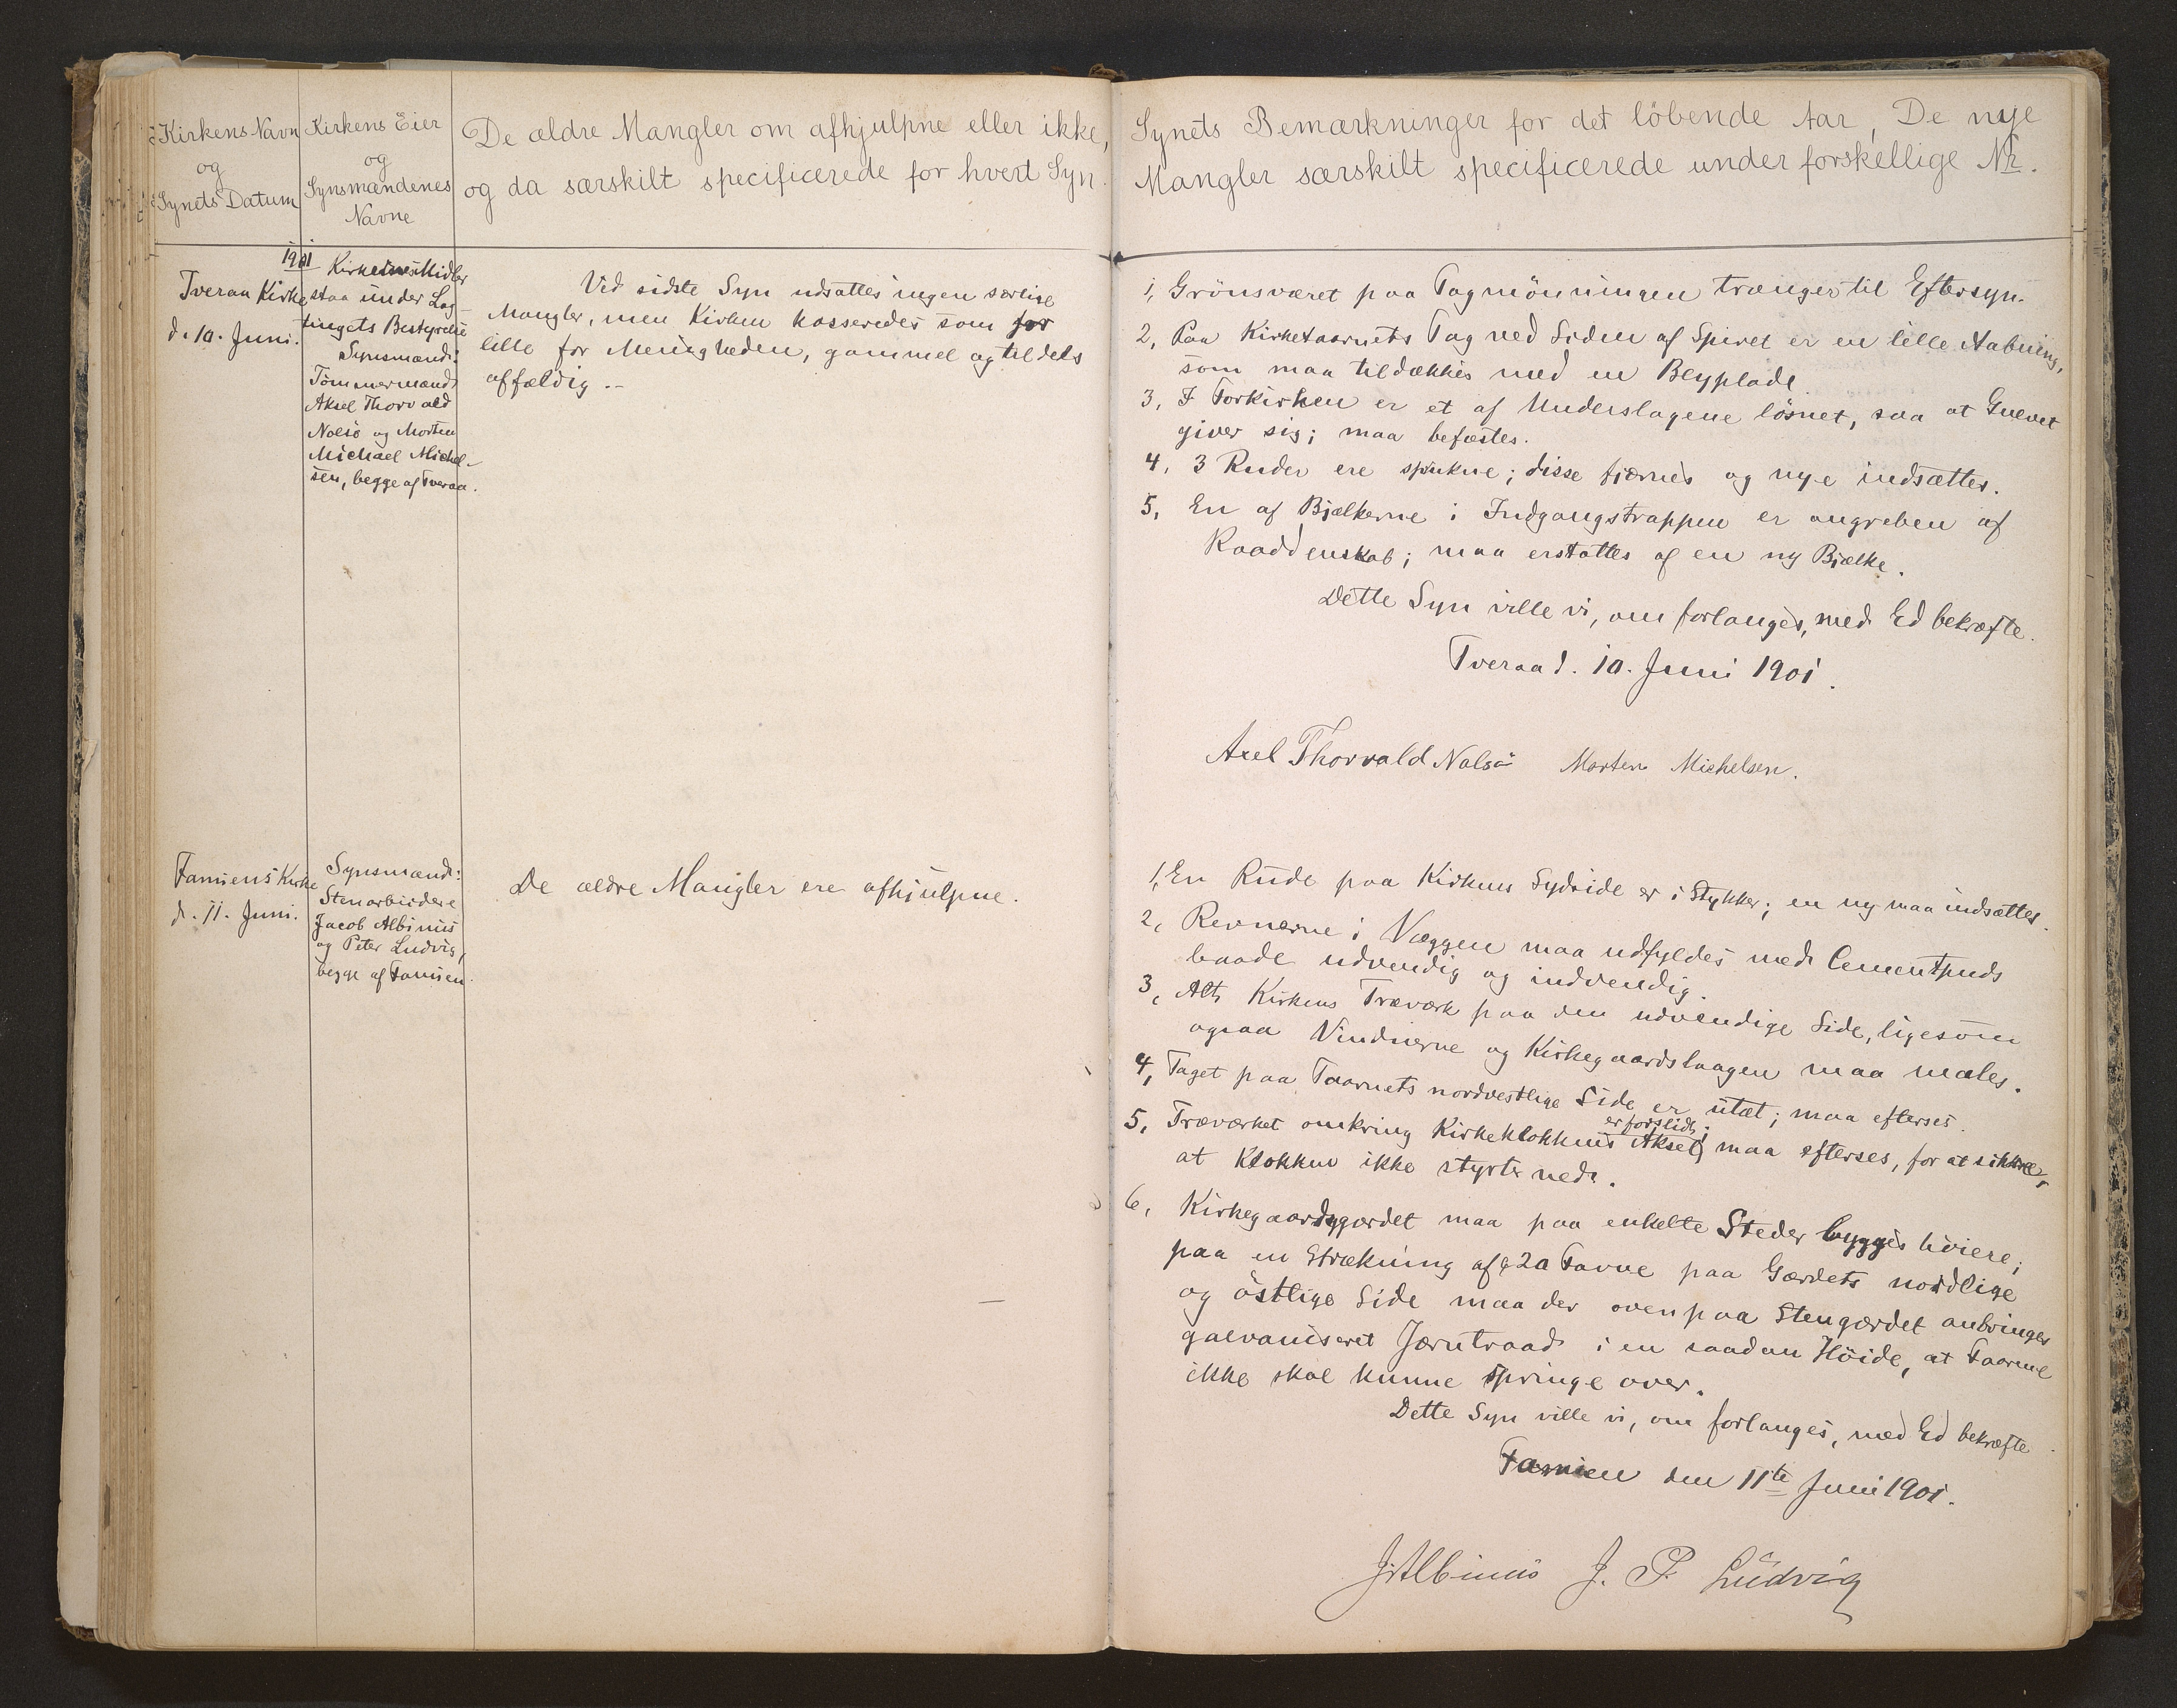 Kirkens Navn
og
Synets Datum
Kirkens Eier
og
Synsmændenes
Navne
De ældre Mangler om afhjulpne eller ikke,
og da særskilt specificerede for hvert Syn.
Synets Bemærkninger for det löbende Aar, De nye
Mangler særskilt specificerede under forskellige Nr.
1901
Tveraa Kirke
d. 10. Juni.
Kirkernes Midler
staa under Lag-
tingets Bestyrelse
Synsmænd:
Tömmermænd
Aksel Thorvald
Nolsö og Morten
Michael Michel-
sen, begge af Tveraa.
Ved sidste Syn udsattes ingen særlige
Mangler, men Kirken kasseredes som for
lille for Menigheden, gammel og tildels
affældig.-
1, Grönsværet paa Tagmönningen trænger til Eftersyn.
2, Paa Kirketaarnets Tag ved Siden af Spiret er en lille Aabning,
som maa tildækkes med en Blyplade
3, I Forkirken er et af Underslagene lösnet, saa at Gulvet
giver sig; maa befæstes.
4, 3 Ruder ere sprukne; disse fjernes og nye indsættes.
5, En af Bjælkerne i Indgangstrappen er angreben af
Raaddenskab; maa erstattes af en ny Bjælke.
Dette Syn ville vi, om forlanges, med Ed bekræfte.
Tveraa d. 10. Juni 1901.
Axel Thorvald Nolsö Morten Michelsen.
Famiens Kirke
d. 11. Juni.
Synsmænd:
Stenarbeidere
Jacob Albinus
og Peter Ludvig,
begge af Famien.
De ældre Mangler ere afhjulpne.
1, En Rude paa Kirkens Sydside er i Stykker; en ny maa indsættes.
2, Revnerne i Væggen maa udfyldes med Cementpuds
baade udvendig og indvendig.
3, Alt Kirkens Træværk paa den udvendige Side, ligesom
ogsaa Vinduerne og Kirkegaardslaagen maa males.
4, Taget paa Taarnets nordvestlige Side er utæt; maa efterses.
er forslidt;
5, Træværket omkring Kirkeklokkens Aksel maa efterses, for at sikkre,
at Klokken ikke styrter ned.
6, Kirkegaardsgærdet maa paa enkelte Steder bygges höiere;
paa en Strækning af 20 Favne paa Gærdets nordlige
og östlige Side maa der ovenpaa Stengærdet anbringes
galvaniseret Jerntraad i en saadan Höide, at Faarene
ikke skal kunne springe over.
Dette Syn ville vi, om forlanges, med Ed bekræfte.
Famien den 11te Juni 1901.
J. Albinus J. P. Ludvig